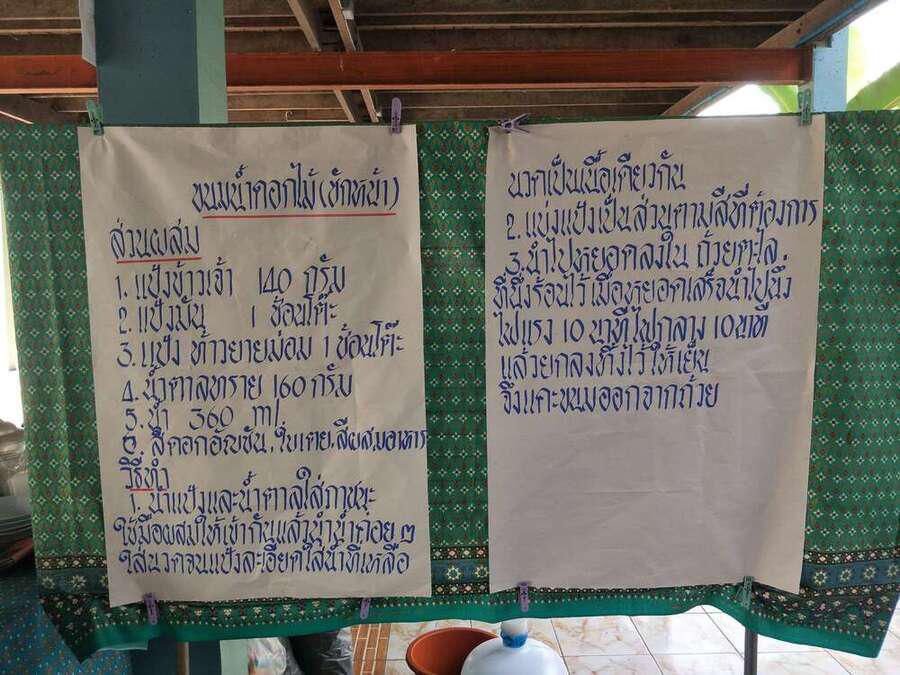 ขนมน้ำดอกไม้(ชักหน้า)
ส่วนผสม
1. แป้งข้าวเจ้า 140 กรัม
2. แป้งมัน 1 ช้อนโต๊ะ
3. แป้ง ท้าวยายม่อม 1 ช้อนโต๊ะ
4. น้ำตาลทราย 160 กรัม
5. น้ำ 360 ml
6. สีดอกอัญชัน, ใบเตย, สีผสมอาหาร
วิธีทำ
1. นำแป้งและน้ำตาลใส่ภาชนะ
ใช้มือผสมให้เข้ากันแล้วนำน้ำค่อย ๆ
ใส่นวดจนแป้งละเอียดใส่น้ำที่เหลือ
นวดเป็นเนื้อเดียวกัน
2. แบ่งแป้งเป็นส่วนตามสีที่ต้องการ
3. นำไปหยอดลงใน ถ้วยตะไล
ที่นึ่งร้อนไว้ เมื่อหยอดเสร็จนำไปนึ่ง
ไฟแรง 10 นาที ไฟกลาง 10 นาที
แล้วยกลงทิ้งไว้ ให้เย็น
จึงแคะขนมออกจากถ้วย